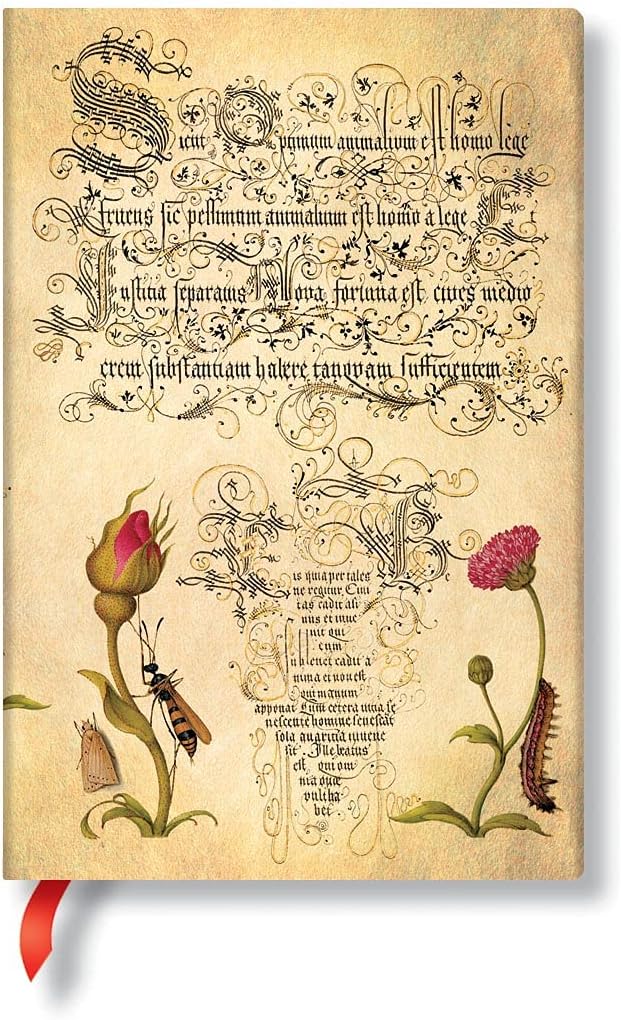 Sicut Optimum animalium est homo lege
fruens sic pessimum animalium est homo a lege Et
Iustitia separatus Nova fortuna est cives medio
crem substantiam habere tanquam sufficientem
is quia per tales
ne regitur Civi
tas cadit ali
nus et iuve
nit qui
cum
Sublenet cadit a
nima et non est
qui manum
apponat Cum cetera vitia se
nescente homine senescat
sola avaritia iuvene
sit. Ille beatus
est qui om
nia quae
vult ha
bet